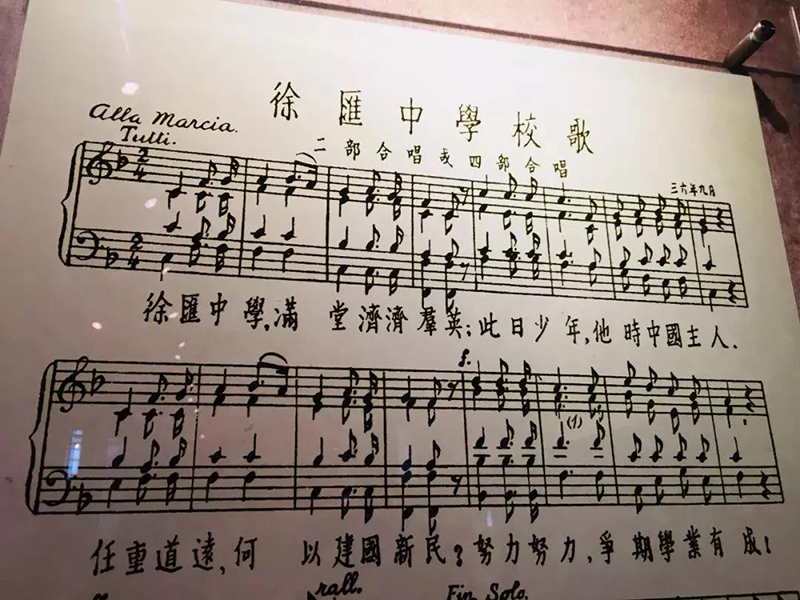 徐匯中學校歌
Alla Marcia.
Tutti.
二部合唱或四部合唱
三六年九月
2 4
2 4
徐匯中學,滿堂濟濟羣英;此日少年,他時中國主人.
f.
(1)
任重道遠,何以建國新民?努力努力,爭期學業有成!
rall.
Fin Solo.